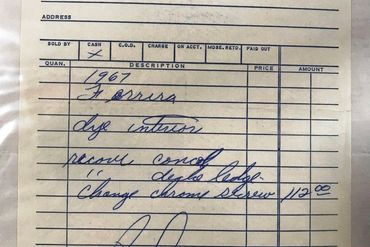 ADDRESS
SOLD BY CASH C.O.D. CHARGE ON ACCT. MDSE. RETD. PAID OUT
X
QUAN. DESCRIPTION PRICE AMOUNT
1967
Ferrira
dye interior
recove
" ledge
Change chrome screw 112 00